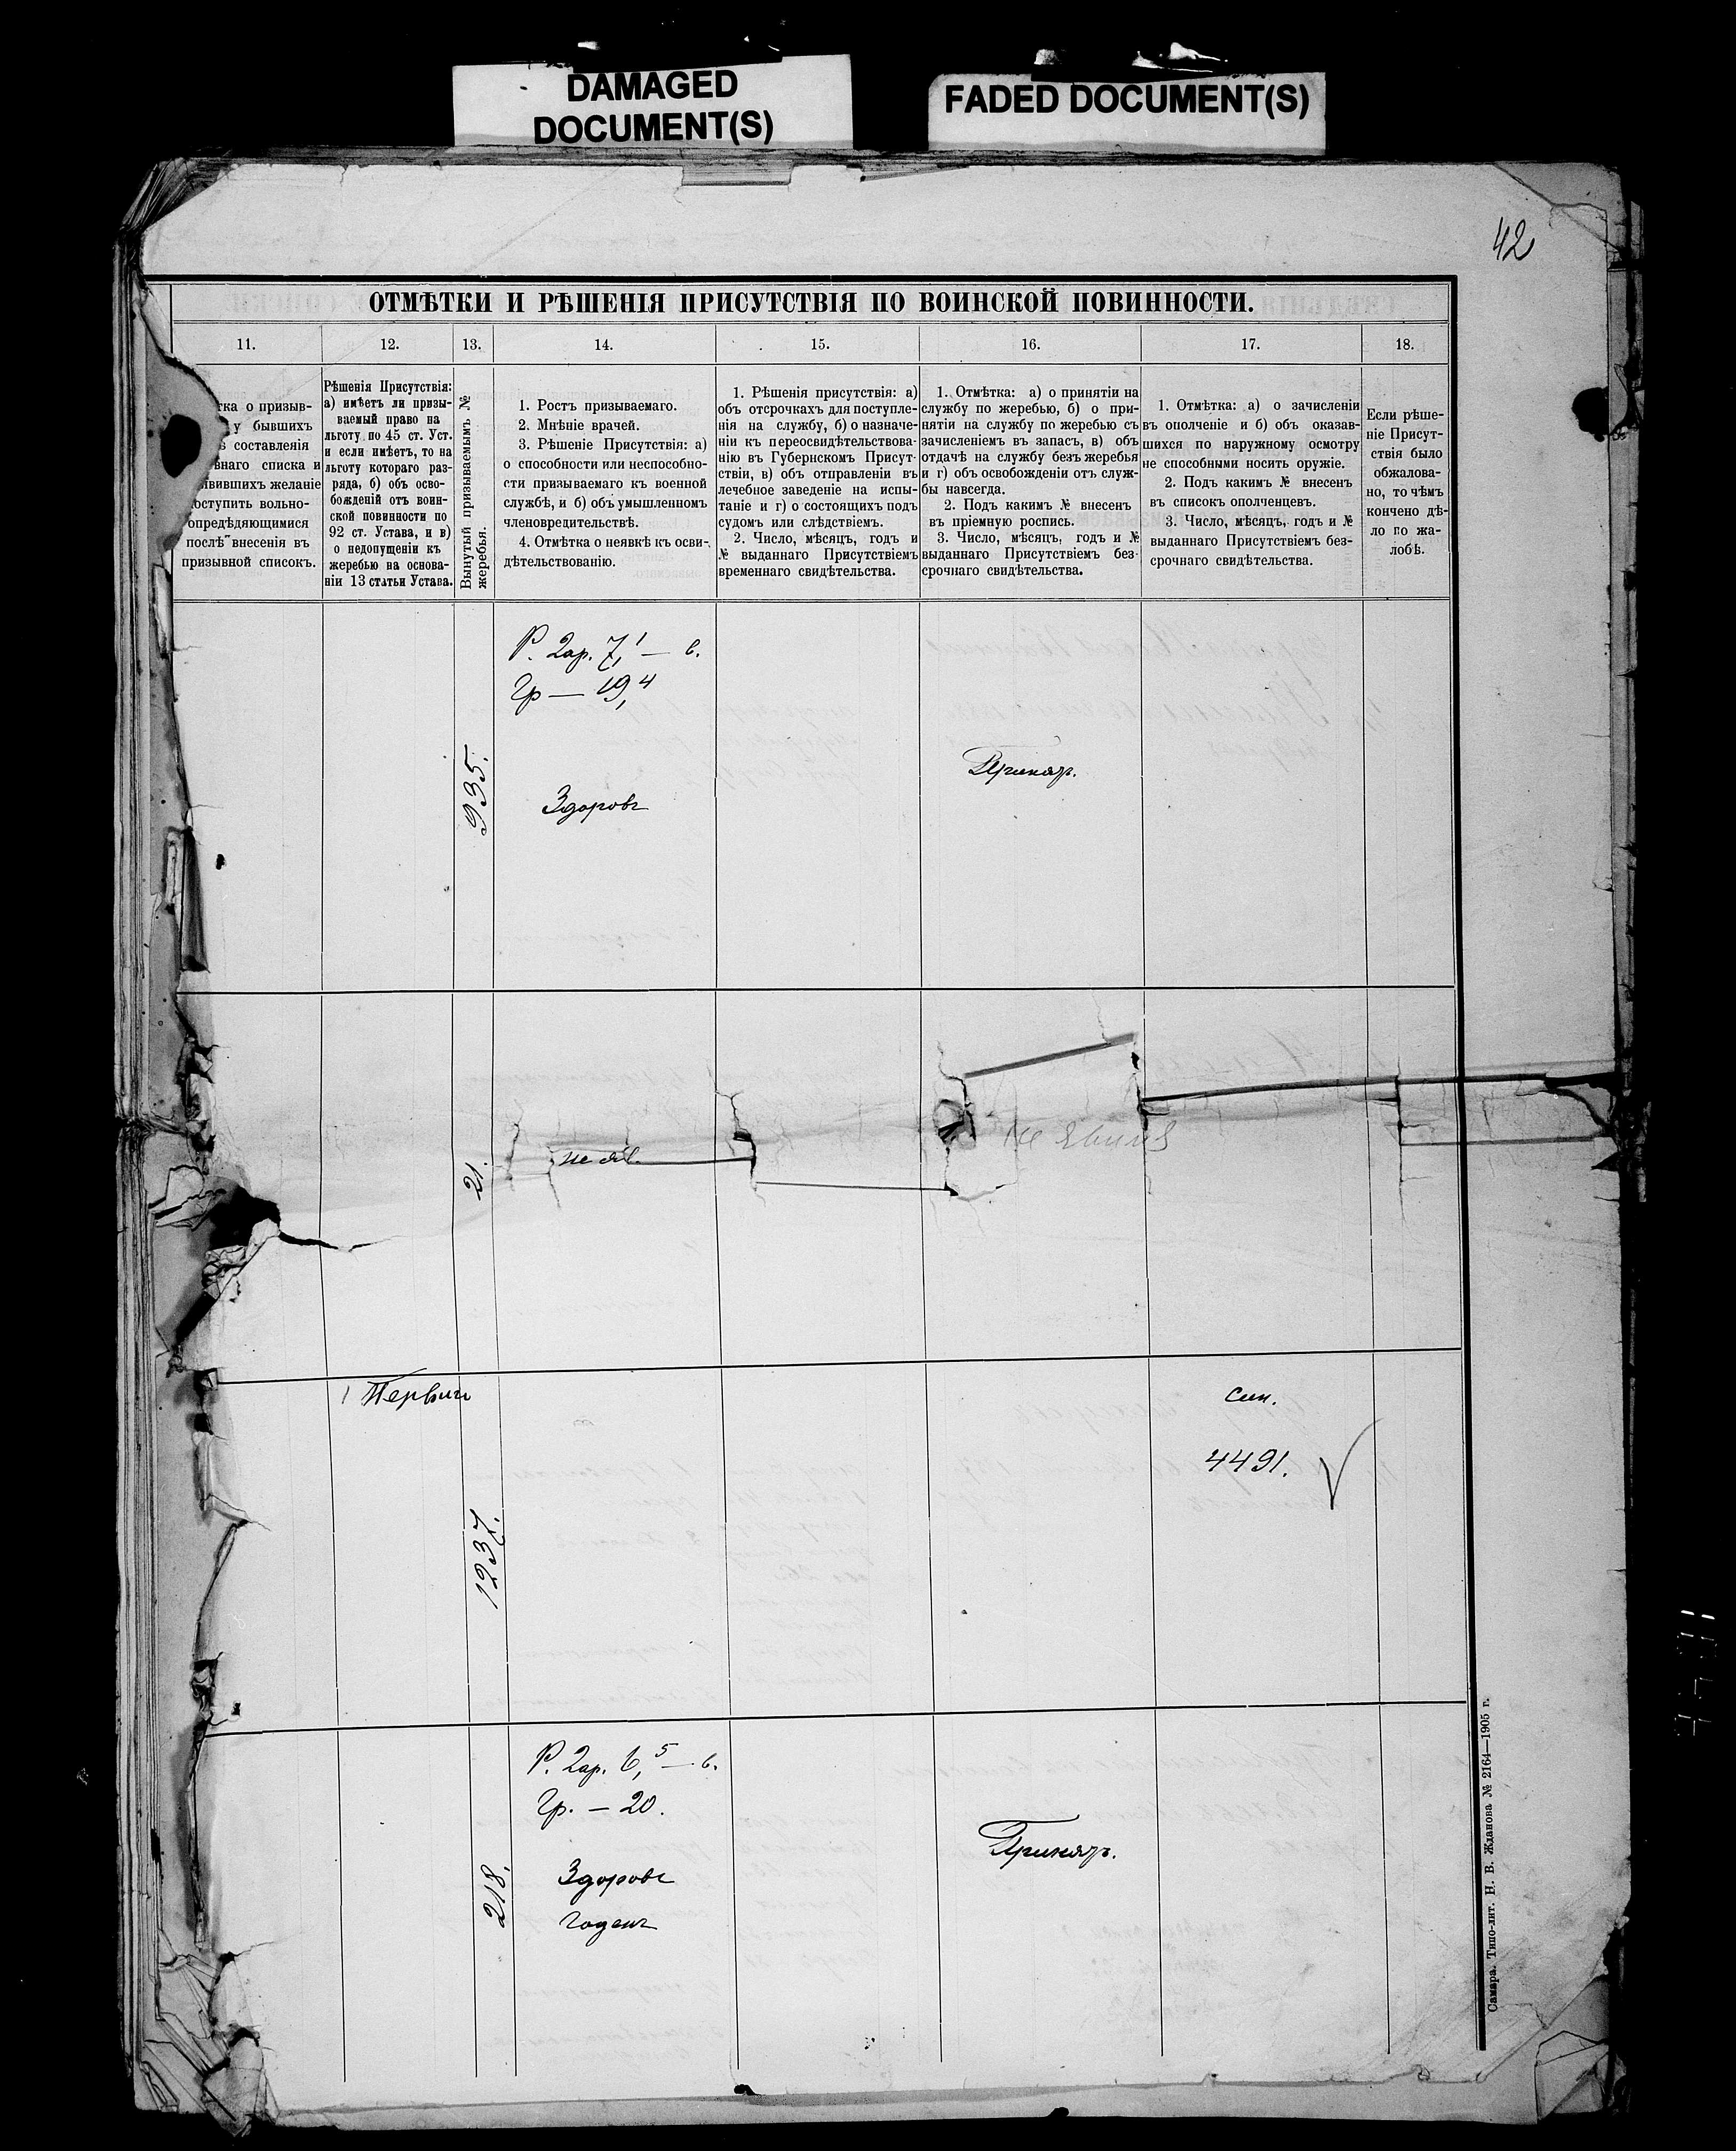 DAMAGED
DOCUMENT(S)
FADED DOCUMENT(S)
42
ОТМѢТКИ И РѢШЕНІЯ ПРИСУТСТВІЯ ПО ВОИНСКОЙ ПОВИННОСТИ.
11.
12.
13.
14.
15.
16.
17.
18.
тка о призыв-
у бывшихъ
составленія
наго списка и
ившихъ желаніе
оступить вольно-
опредѣдяющимися
послѣ внесенія въ
призывной списокъ.
Рѣшенія Присутствія:
а) имѣетъ ли призы-
ваемый право на
льготу по 45 ст. Уст.
и если имѣетъ, то на
льготу котораго раз-
ряда, б) объ осво-
божденій отъ воин-
ской повинности по
92 ст. Устава, и в)
о недопущеніи къ
жеребью на основа-
ніи 13 статьи Устава.
Вынутый призываемымъ №
жеребья.
1. Ростъ призываемаго.
2. Мнѣніе врачей.
3. Рѣшеніе Присутствія: а)
о способности или неспособно-
сти призываемаго къ военной
службѣ, и б) объ умышленномъ
членовредительствѣ.
4. Отмѣтка о неявкѣ къ осви-
дѣтельствованію.
1. Рѣшенія присутствія: а)
объ отсрочкахъ для поступле-
нія на службу, б) о назначе-
ніи къ переосвидѣтельствова-
нію въ Губернскомъ Присут-
ствіи, в) объ отправленіи въ
лечебное заведеніе на испы-
таніе и г) о состоящихъ подъ
судомъ или слѣдствіемъ.
2. Число, мѣсяцъ, годъ и
№ выданнаго Присутствіемъ
временнаго свидѣтельства.
1. Отмѣтка: а) о принятіи на
службу по жеребью, б) о при-
нятіи на службу по жеребью съ
зачисленіемъ въ запасъ, в) объ
отдачѣ на службу безъ жеребья
и г) объ освобожденіи отъ служ-
бы навсегда.
2. Подъ какимъ № внесенъ
въ пріемную роспись.
3. Число, мѣсяцъ, годъ и №
выданнаго Присутствіемъ без-
срочнаго свидѣтельства.
1. Отмѣтка: а) о зачисленіи
въ ополченіе и б) объ оказав-
шихся по наружному осмотру
не способными носить оружіе.
2. Подъ какимъ № внесенъ
въ список ополченцевъ.
3. Число, мѣсяцъ, годъ и №
выданнаго Присутствіемъ без-
срочнаго свидѣтельства.
Если рѣше-
ніе Присут-
ствія было
обжалова-
но, то чѣмъ
кончено дѣ-
ло по жа-
лобѣ.
935.
Р. 2ар. 7,1 — в.
Гр — 19,4
Здоровъ
Принятъ.
21.
не яв.
не явился
1 Первый
1237.
Сип.
4491.
218.
Р. 2ар. 6,5 — в.
Гр. — 20.
Здоровъ
Годенъ
Принятъ.
Самара. Типо-лит. Н. В. Жданова № 2164—1905 г.